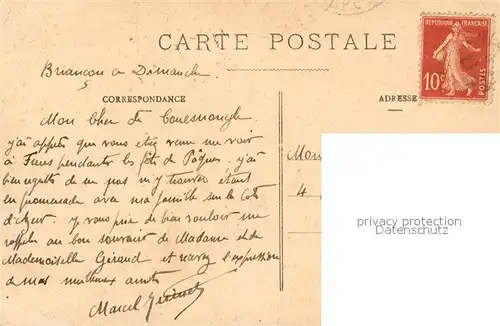 CARTE POSTALE
RÉPUBLIQUE FRANÇAISE
10c
POSTES
Briançon ce Dimanche
CORRESPONDANCE
ADRESSE
Mon Cher de
j'ai appris que vous étiez venu me voir
à pendant les fêtes de Pâques. j'ai
bien regretté de ne pas m'y trouver étant
en promenade avec ma famille sur la Côte
d'Azur. je vous prie de bien vouloir me
rappeler au bon souvenir de Madame et de
Mademoiselle Giraud et l'expression
de mes meilleures amitiés
Marcel
Mon
4
privacy protection
Datenschutz